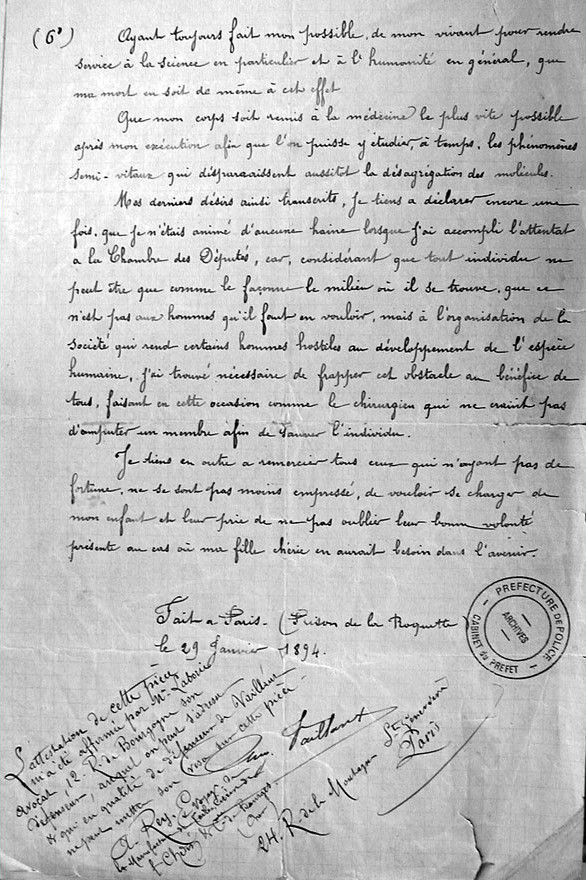 (6°) Ayant toujours fait mon possible, de mon vivant pour rendre
service à la science en particulier et à l'humanité en général, que
ma mort en soit de même à cet effet
Que mon corps soit remis à la médecine le plus vite possible
après mon exécution afin que l'on puisse y étudier, à temps, les phénomènes
semi-vitaux qui disparaaissent aussitot la désagrégation des molécules.
Mes derniers désirs ainsi transcrits, Je tiens a déclarer encore une
fois, que Je n'étais animé d'aucune haine lorsque J'ai accompli l'attentat
a la Chambre des Députés, car, considérant que tout individu ne
peut être que comme le façonne le milieu où il se trouve, que ce
n'est pas aux hommes qu'il faut en vouloir, mais à l'organisation de la
société qui rend certains hommes hostiles au développement de l'espèce
humaine, J'ai trouvé nécessaire de frapper cet obstacle au bénéfice de
tous, faisant en cette occasion comme le chirurgien qui ne craint pas
d'amputer un membre afin de sauver l'individu.
Je tiens en outre a remercier tous ceux qui n'ayant pas de
fortune, ne se sont pas moins empressé, de vouloir se charger de
mon enfant et leur prie de ne pas oublier leur bonne volonté
présente au cas où ma fille chérie en aurait besoin dans l'avenir.
Fait a Paris- (Prison de la Roquette)
le 29 Janvier 1894.
PREFECTURE DE POLICE
CABINET du PREFET
ARCHIVES
L'attestation de cette pièce
m'a été affirmé par Mr Laborie
avocat, 12, R. de Bourgogne son
défenseur, auquel on peut s'adresser
& qui en qualité de défenseur de Vaillant
ne peut mettre son visa sur cette pièce-
Vaillant
A. Rey
24, R. de la Montagne Ste Geneviève
Paris